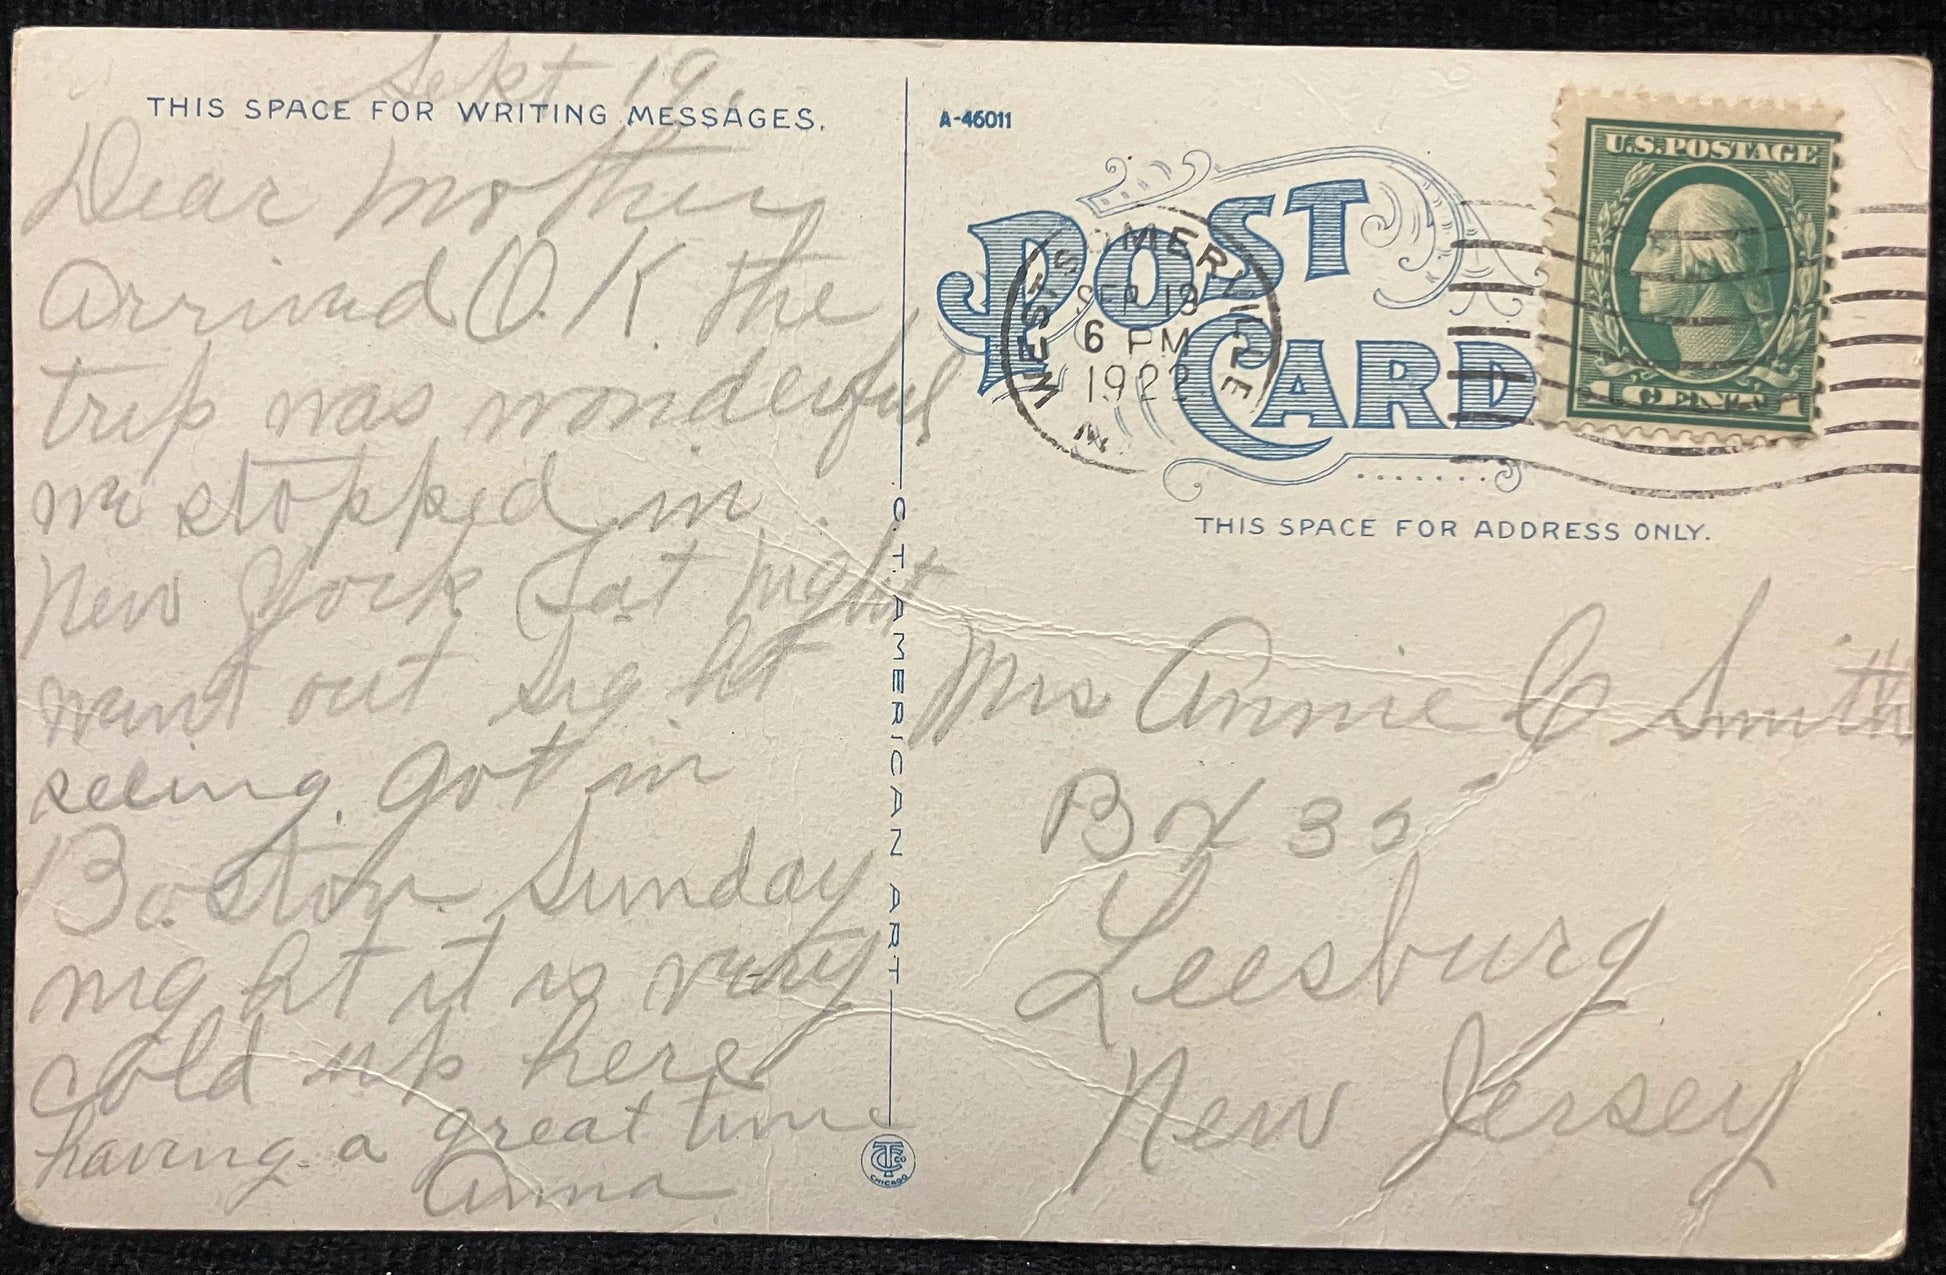 Sept 19.
THIS SPACE FOR WRITING MESSAGES.
Dear Mother
Arrived O.K the
trip was wonderful
we stopped in
New York Sat night
went out sight
seeing. got in
Boston Sunday
night it is very
cold up here
having a great time
Anna
C. T. AMERICAN ART
CT CO
CHICAGO
A-46011
POST
CARD
WEST SOMERVILLE
SEP 19
6 PM
1922
U.S. POSTAGE
1 CENT 1
THIS SPACE FOR ADDRESS ONLY.
Mrs Annie C Smith
Box 35
Leesburg
New Jersey